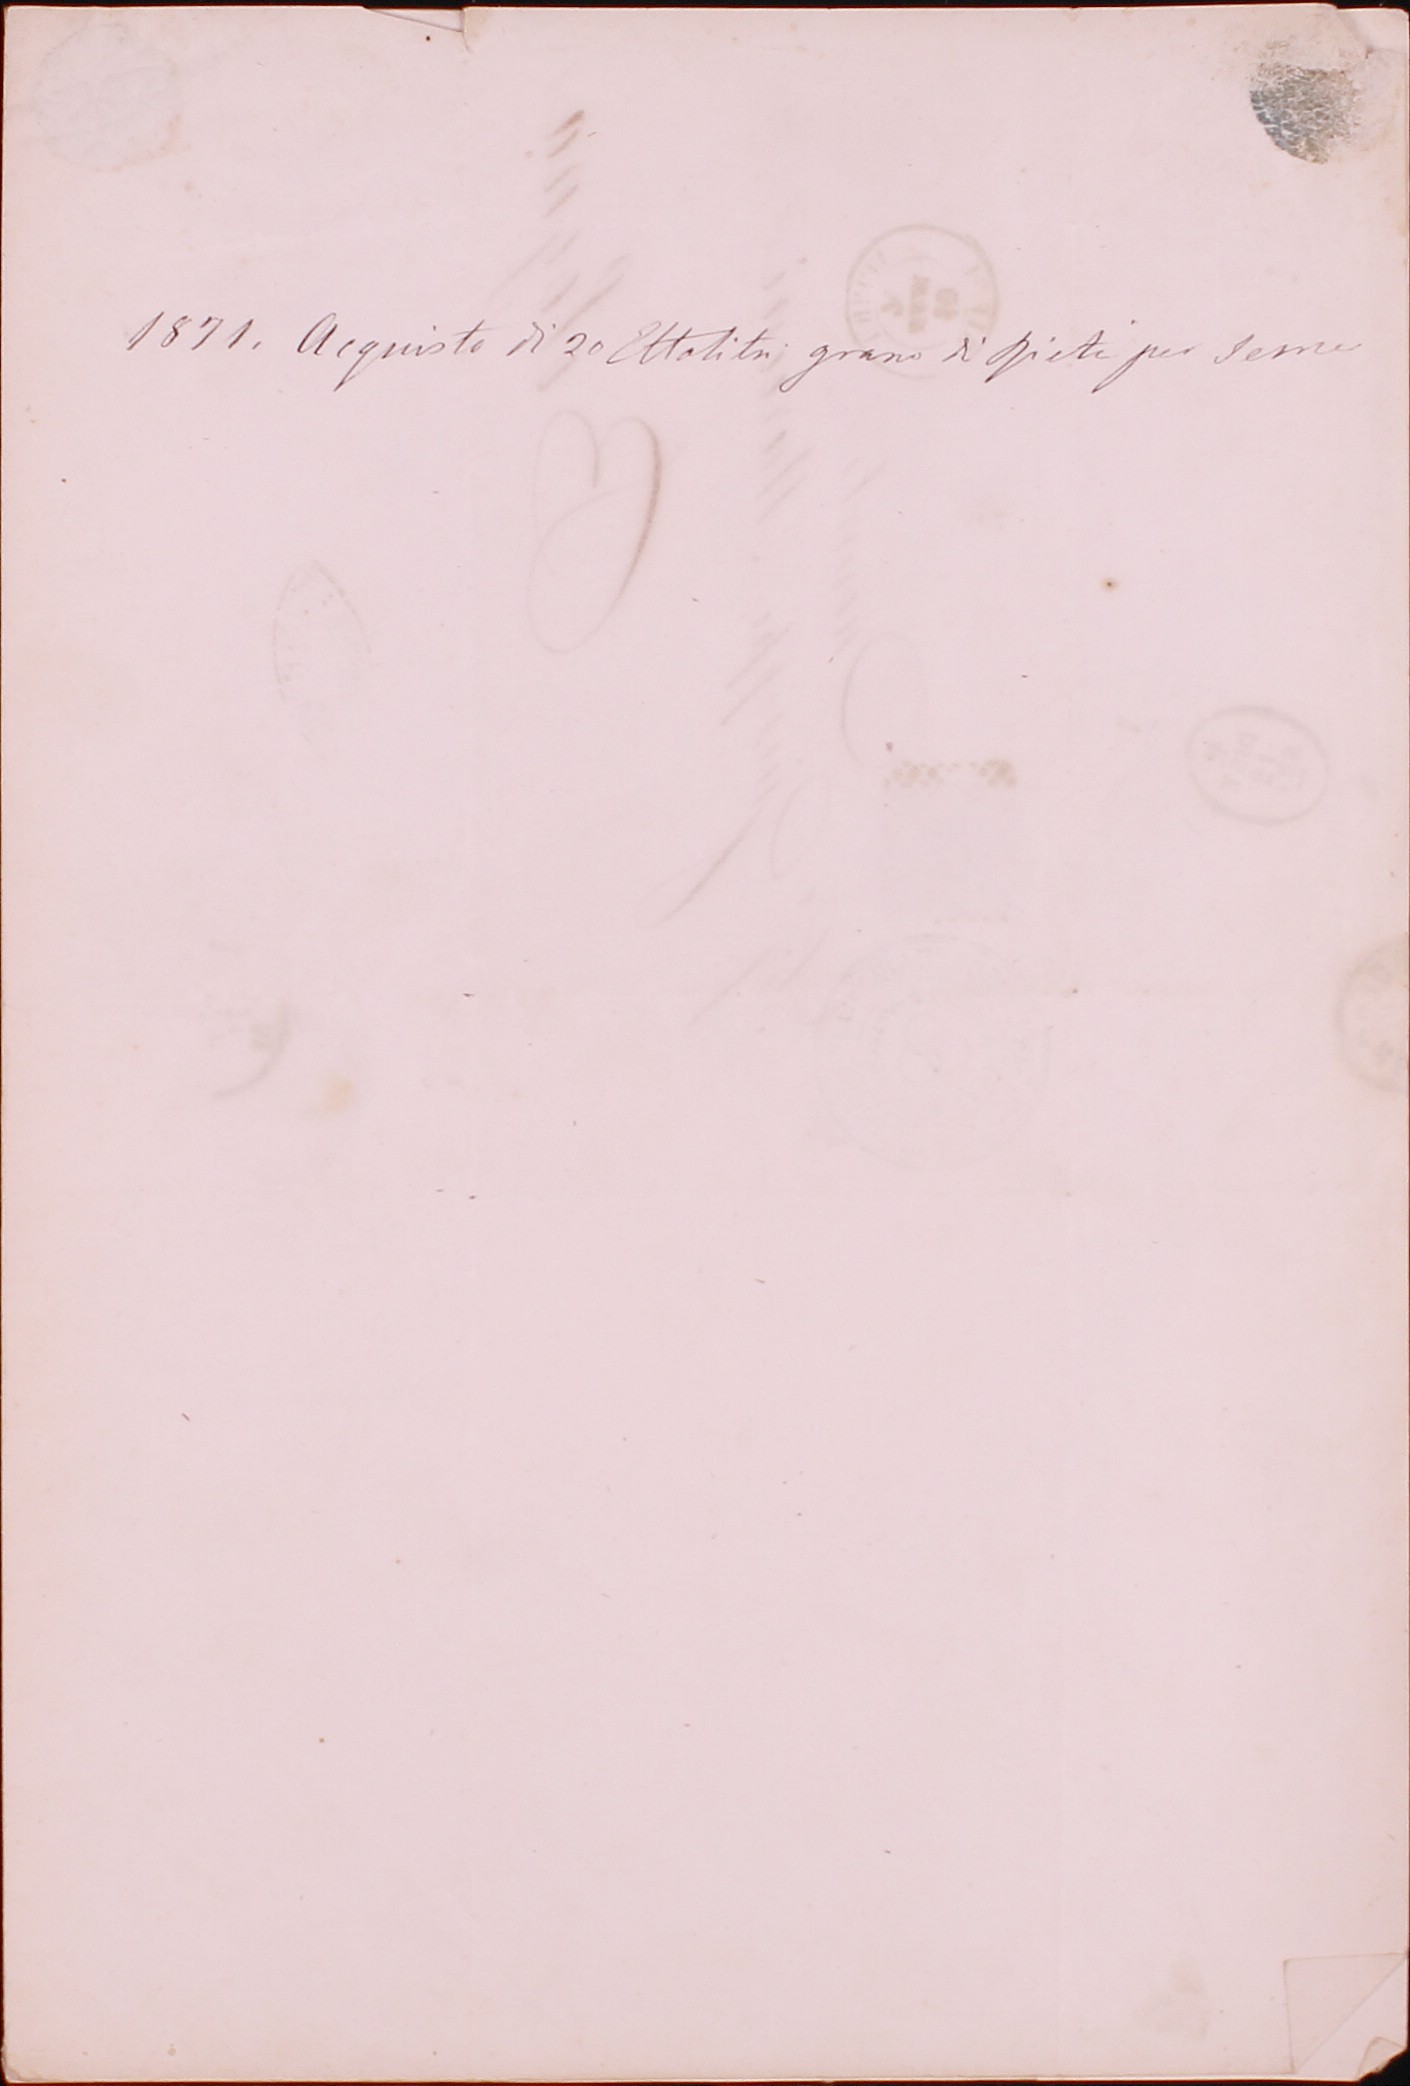 1871. Acquisto di 20 Ettolitri grano di Rieti per seme